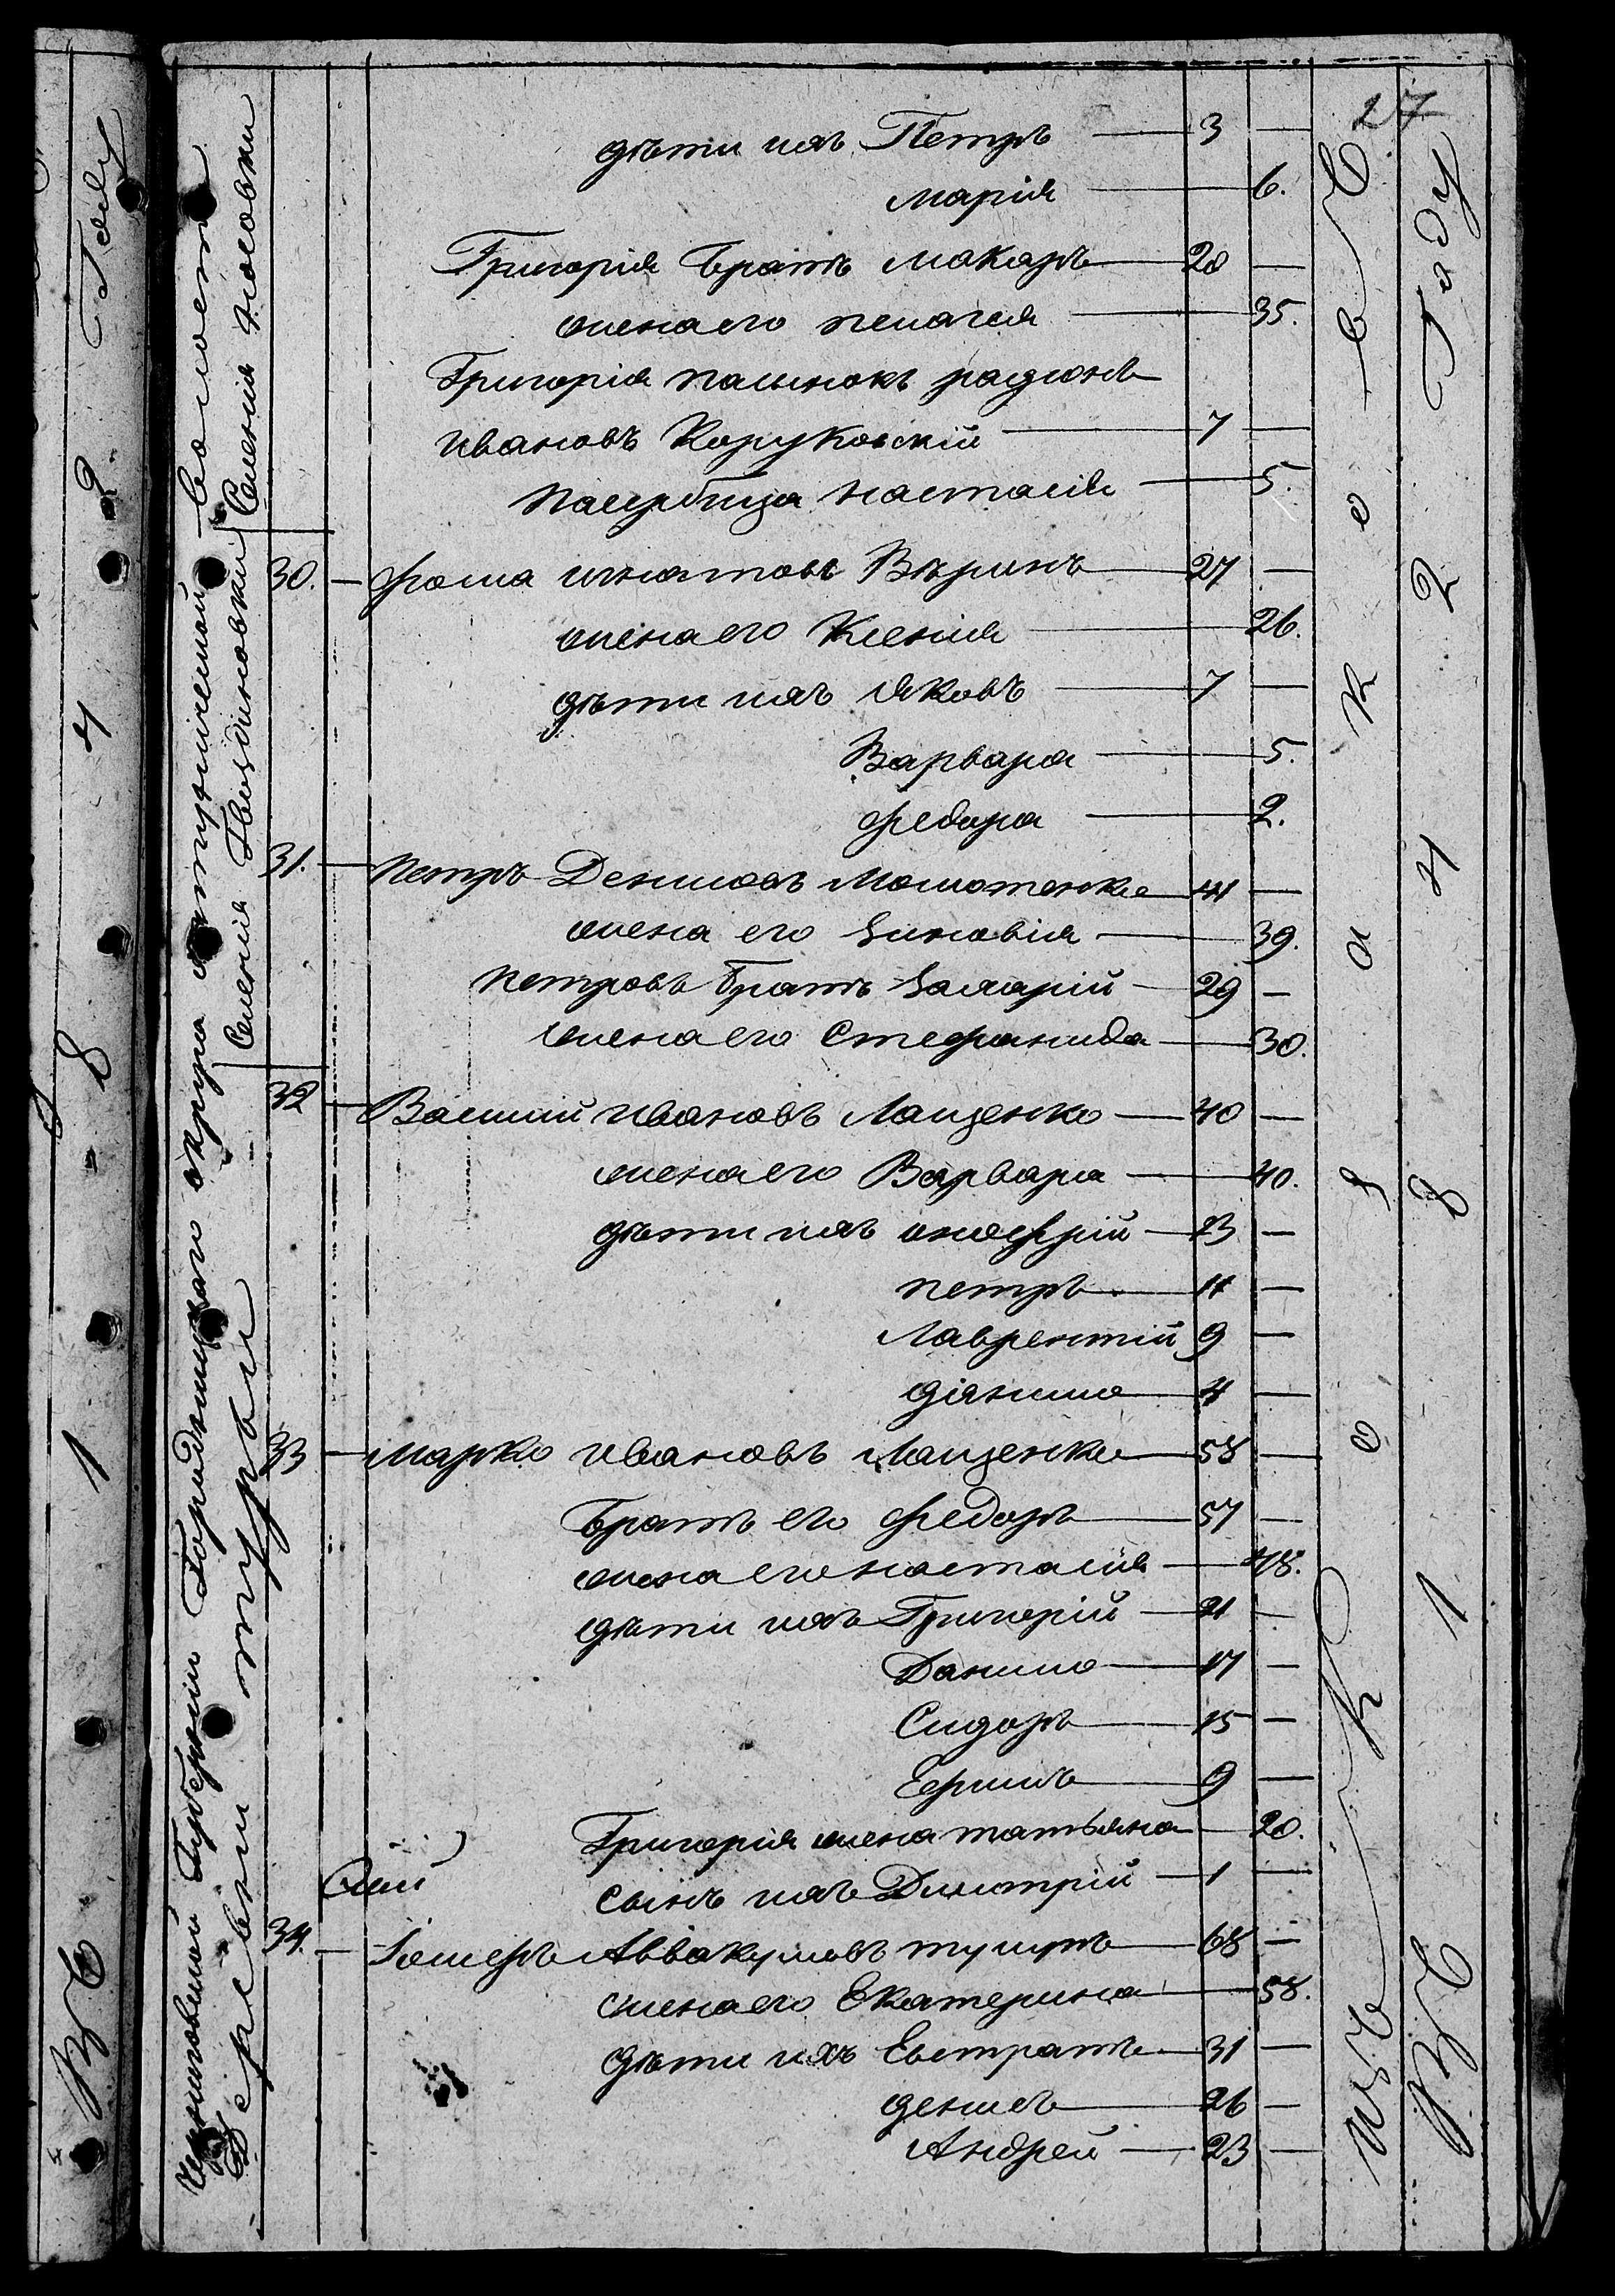 27
дѣти ихъ Петръ — 3 —
марія — 6.
Григорія братъ макаръ — 20 —
жена его пелагея — 35.
Григорія пасынокъ радіонъ
ивановъ Коруковскій — 7 —
падчерица настасія — 5.
30. — фома игнатовъ Вѣринъ — 27 —
жена его Ксенія — 26.
дѣти ихъ яковъ — 7 —
Варвара — 5.
федора — 2.
31. — петръ Денисовъ — 41 —
жена его Зиновія — 39.
петровъ братъ Захарій — 29 —
жена его Стефанида — 30.
32 — Василий ивановъ Лащенко — 40 —
жена его Варвара — 40.
дѣти ихъ онофрій — 13 —
петръ — 11 —
Лаврентій 9 —
данило — 4 —
33 — марко ивановъ Лащенко — 58 —
братъ его федоръ — 57 —
жена его настасія — 48.
дѣти ихъ Григорій — 21 —
Данило — 17 —
Сидоръ — 15 —
Ефимъ — 9 —
Григорія жена татьяна — 20.
сынъ ихъ Димитрій — 1 —
34. — Аввакумовъ — 68 —
жена его Екатерина — 58.
дѣти ихъ Евстратъ — 31 —
денисъ — 26 —
Андрей — 23 —
Черниговской Губерніи Городницкаго округа волости
Деревни
Селенія Гвиздиковки
Селенія
1 8 4 2 Году
1 8 4 2 Году